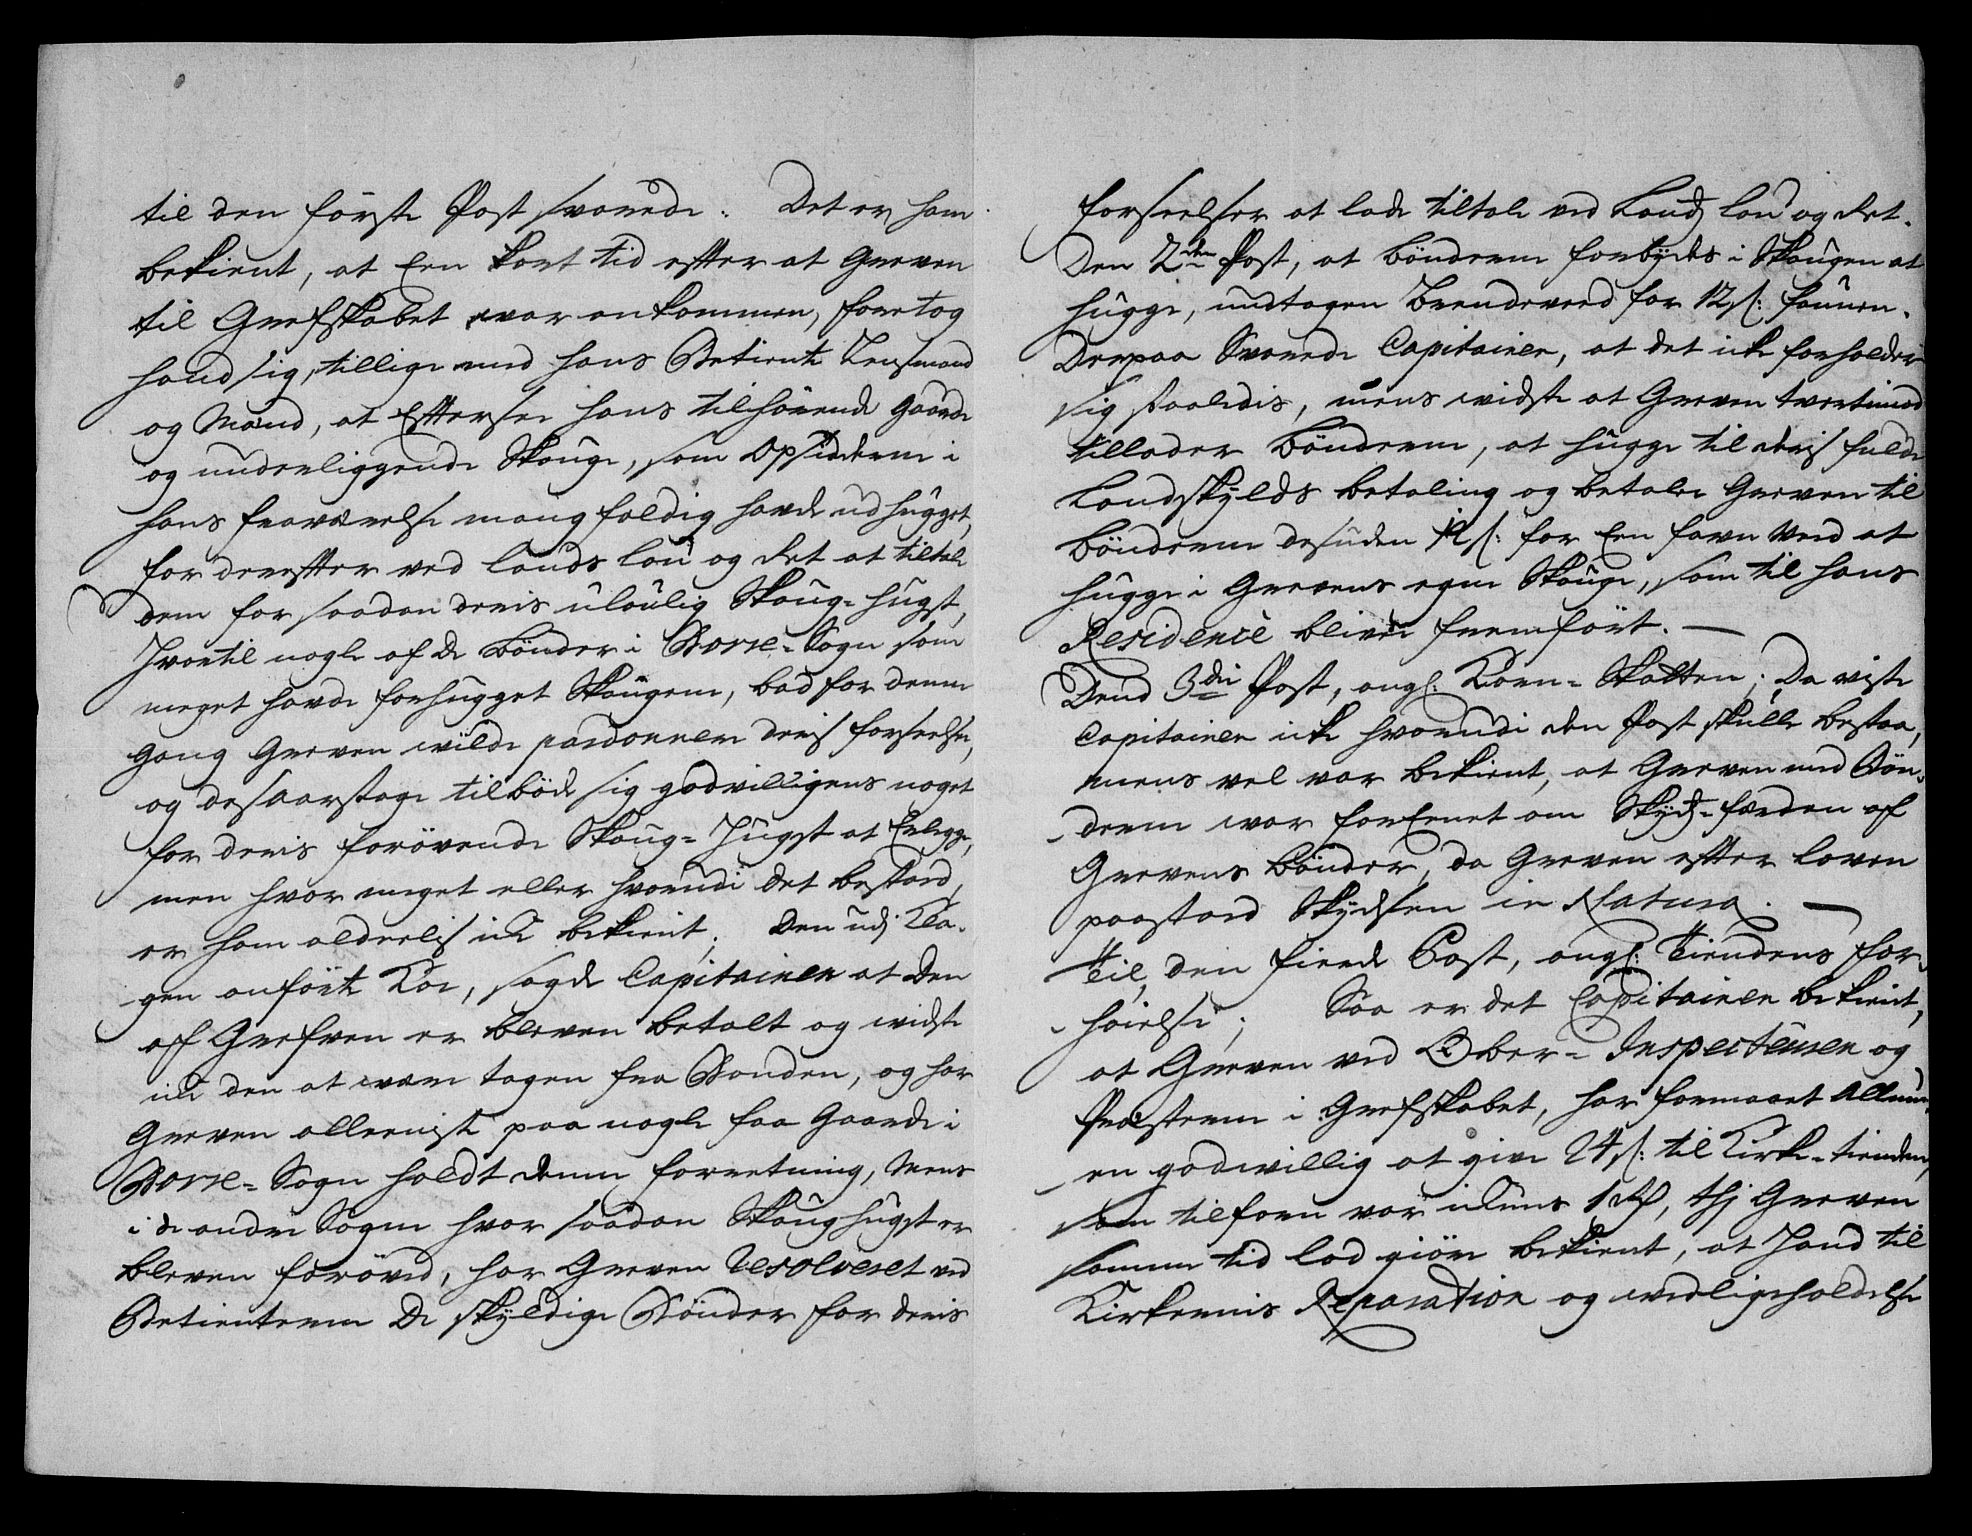 til den förste Post svarede. Det er ham
bekient, at Een kort tid efter at Greven
til Grefskabet war ankommen, foretog
hand sig, tillige med hans Betiente Lensmand
og Mænd, at Efftersee hans tilhörende Gaarde
og underliggende Skouge, som Opsidderne i
hans fraværelse mangfoldig havde udhugget,
for dereffter ved Lands Lou og Ret at tiltale
dem for saadan deris uloulig Skoug-hugst,
Hvortil nogle af de bönder i Borre-Sogn som
meget havde forhugget Skougene, bad for denne
gang Greven wilde pardonnere deris forseelse,
og desaarsage tilböd sig godvilligens noget
for deris forövende Skoug-Hugst at Erlegge,
men hvor meget eller hvorudi det bestoed,
er ham alderlis icke bekient; Den udj Kla-
gen anförte Koe, sagde Capitainen at den
aff Grefven er bleven betalt og widste
icke den at være tagen fra Bonden, og har
Greven alleeniste paa nogle faa Gaarde i
Borre-Sogn holdt denne forretning, Mens
i de andre Sogne hvor saadan Skoughugst er
bleven forövet, har Greven Resolveret ved
Betienterne De skyldige Bönder for deris
forseelser at lade tiltale ved Landz Lou og Ret.
Den 2den Post, at bönderne forbydes i Skougen at
hugge, undtagen Brendeveed for 12 s: faunen.
Derpaa Svarede Capitainen, at det icke forholder
sig saaledis, mens widste at Greven tvertimod
tillader bönderne, at hugge til deris fulde
Landskylds betaling og betaler Greven til
bönderne desuden 12 s: for Een favn Veed at
hugge i Grevens egne Skouge, som til hans
Residence bliver fremfört. —
Dend 3die Post, angl: Korn-Skatten; Da viste
Capitainen icke hvorudi den Post skulle bestaa,
mens vel var bekient, at Greven med Bön-
derne war foreenet om Skyds-færden af
Grevens bönder, da Greven effter loven
paastoed Skydsen in Natura. —
Til den fierde Post, angl: Tiendens for-
höielse; Saa er det Capitainen bekient,
at Greven ved Ober-Inspecteuren og
Præsterne i Grefskabet, har formaaet Allmu-
en godwillig at give 24 s: til Kirke-tienden,
som tilforn var ickuns 1 Rd, thj Greven
samme tid lod giöre bekient, at Hand til
Kirkernis Reparation og wedligeholdelse